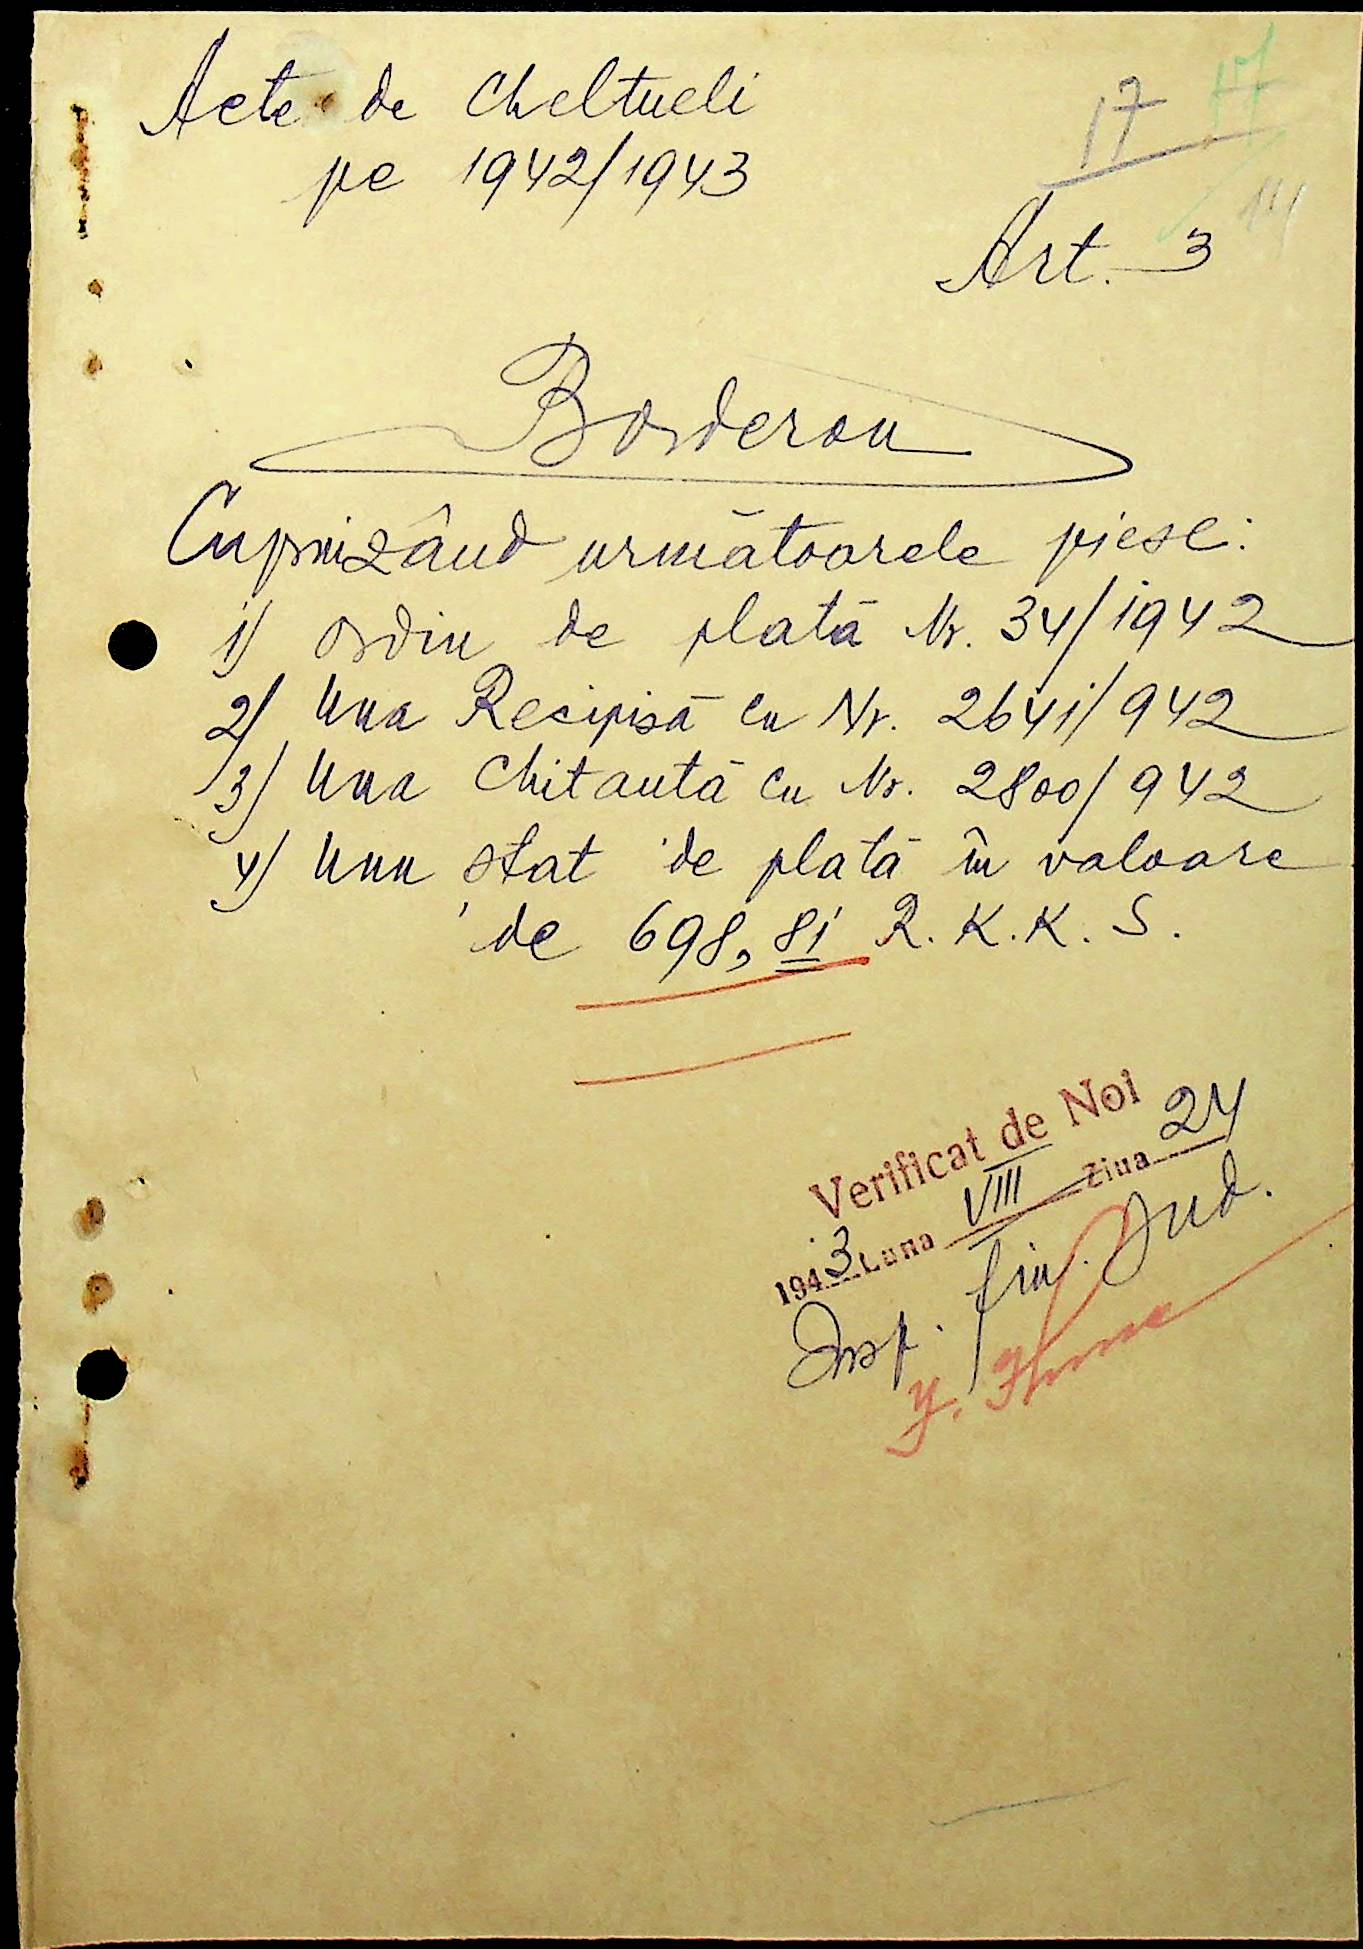 Acte de Cheltueli
pe 1942/1943
17
17
14
Art. 3
Borderou
Cuprizând următoarele piese:
1) ordin de plată Nr. 34/1942
2) Una Recipisă cu Nr. 2641/942
3) Una Chitantă cu Nr. 2800/942
4) Unu stat de plată în valoare
de 698,81 R.K.K.S.
Verificat de Noi
1943 Luna VIII Ziua 24
Insp. fin. Jud.